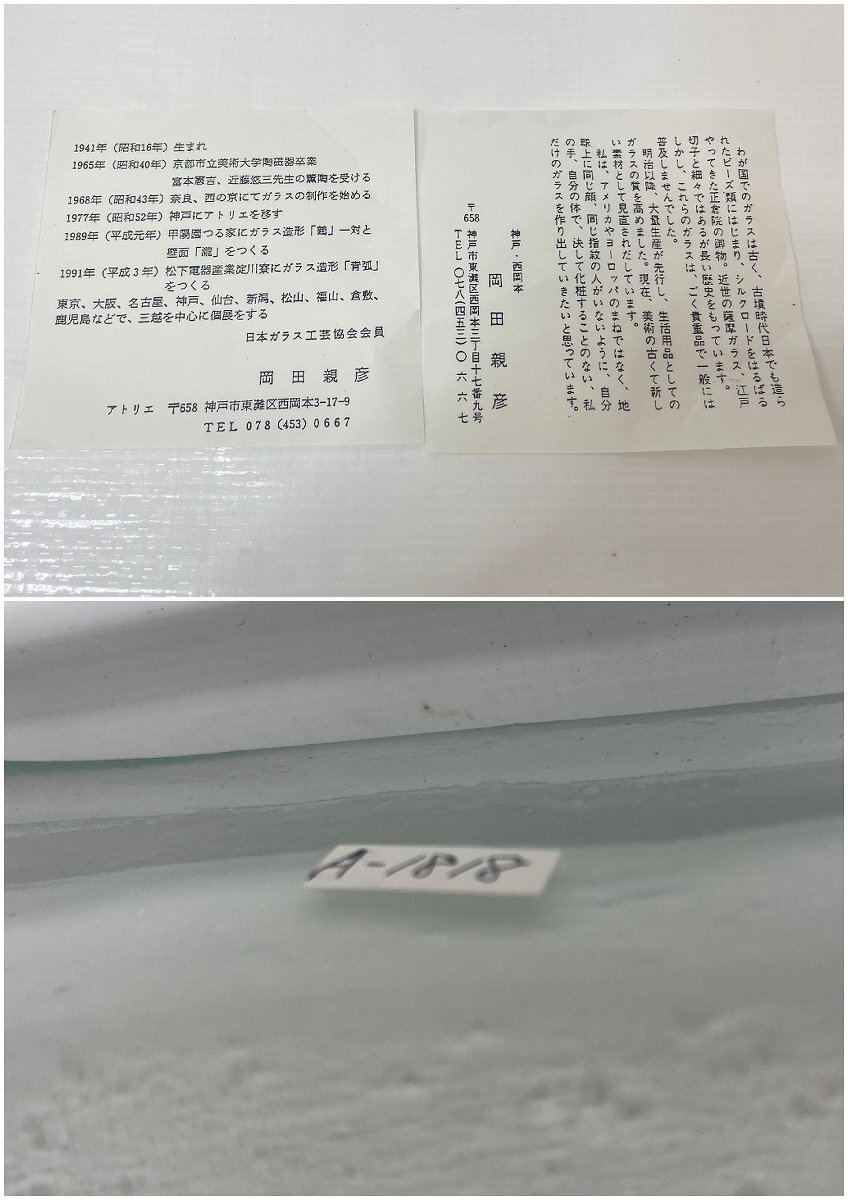 1941年（昭和16年）生まれ
1965年（昭和40年）京都市立美術大学陶磁器卒業
富本憲吉、近藤悠三先生の薫陶を受ける
1968年（昭和43年）奈良、西の京にてガラスの制作を始める
1977年（昭和52年）神戸にアトリエを移す
1989年（平成元年）甲陽園つる家にガラス造形「鶴」一対と
壁面「瀧」をつくる
1991年（平成3年）松下電器産業淀川寮にガラス造形「青弧」
をつくる
東京、大阪、名古屋、神戸、仙台、新潟、松山、福山、倉敷、
鹿児島などで、三越を中心に個展をする
日本ガラス工芸協会会員
岡田親彦
アトリエ 〒658 神戸市東灘区西岡本3-17-9
TEL 078 (453) 0667
わが国でのガラスは古く、古墳時代日本でも造ら
れたビーズ類にはじまり、シルクロードをはるばる
やってきた正倉院の御物。近世の薩摩ガラス、江戸
切子と細々ではあるが長い歴史をもっています。
しかし、これらのガラスは、ごく貴重品で一般には
普及しませんでした。
明治以降、大量生産が先行し、生活用品としての
ガラスの質を高めました。現在、美術の古くて新し
い素材として見直されだしています。
私は、アメリカやヨーロッパのまねではなく、地
球上に同じ顔、同じ指紋の人がいないように、自分
の手、自分の体で、決して化粧することのない、私
だけのガラスを作り出していきたいと思っています。
神戸・西岡本
岡田親彦
〒658 神戸市東灘区西岡本三丁目十七番九号
TEL〇七八(四五三)〇六六七
A-1818